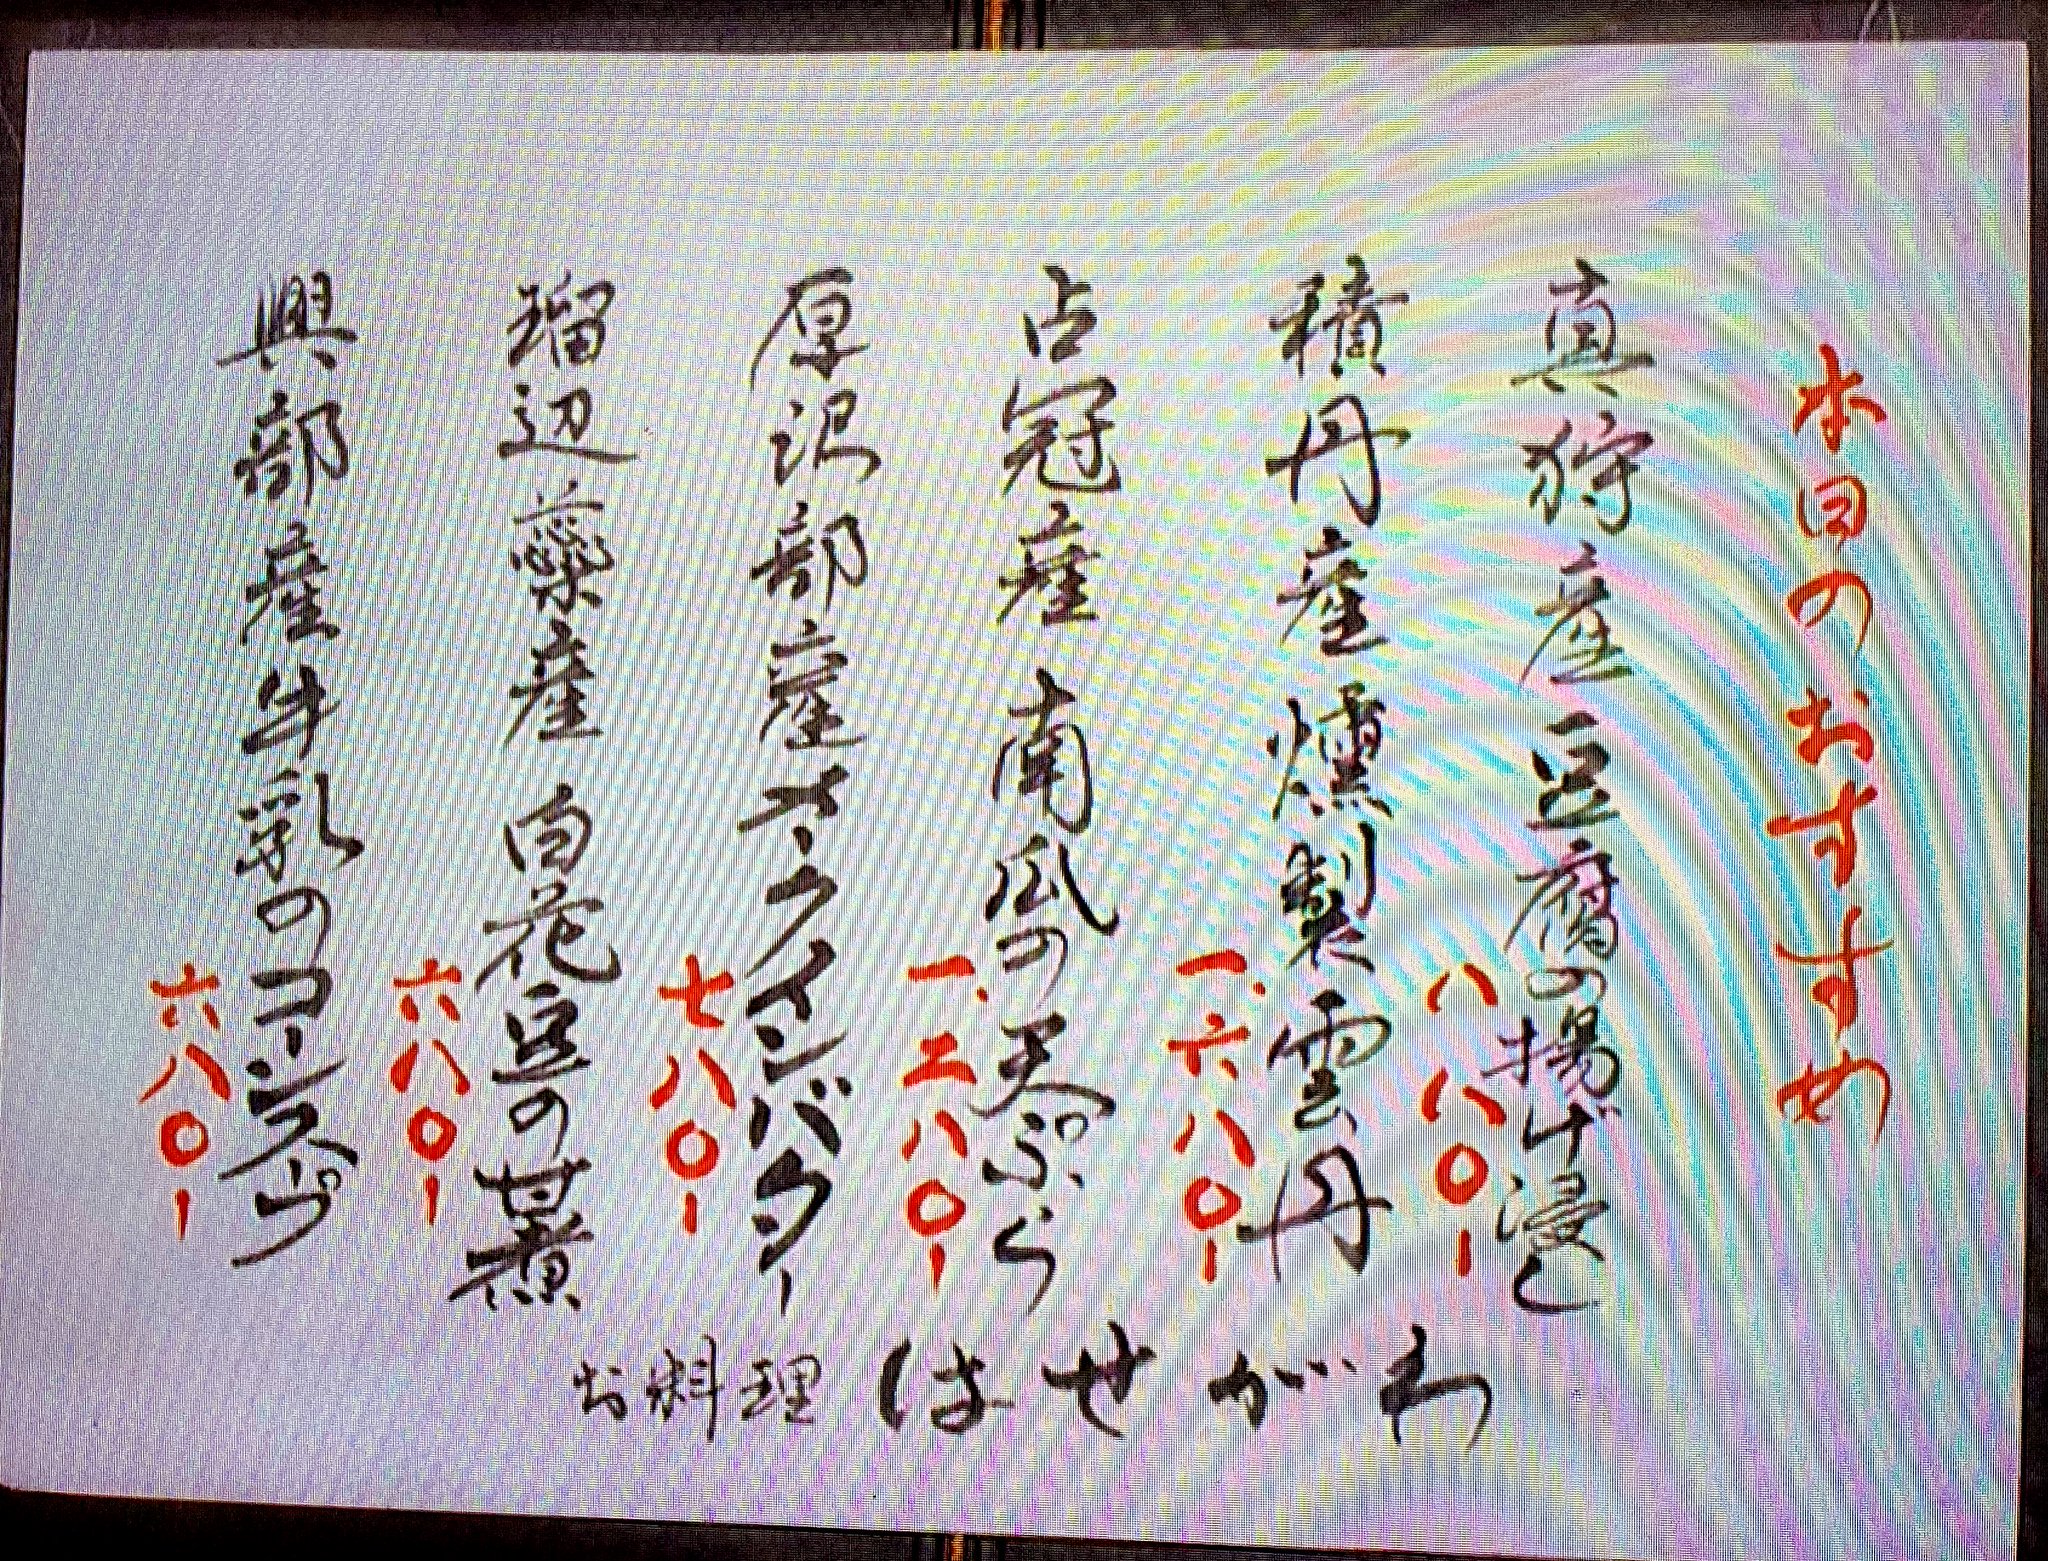 本日のおすすめ
真狩産 豆腐の揚げ浸し
八八〇-
積丹産 燻製雲丹
一.六八〇-
占冠産 南瓜の天ぷら
一.二八〇-
厚沢部産メークインバター
七八〇-
瑠辺蘂産 白花豆の甘煮
六八〇-
興部産牛乳のコーンスープ
六八〇-
お料理 はせがわ